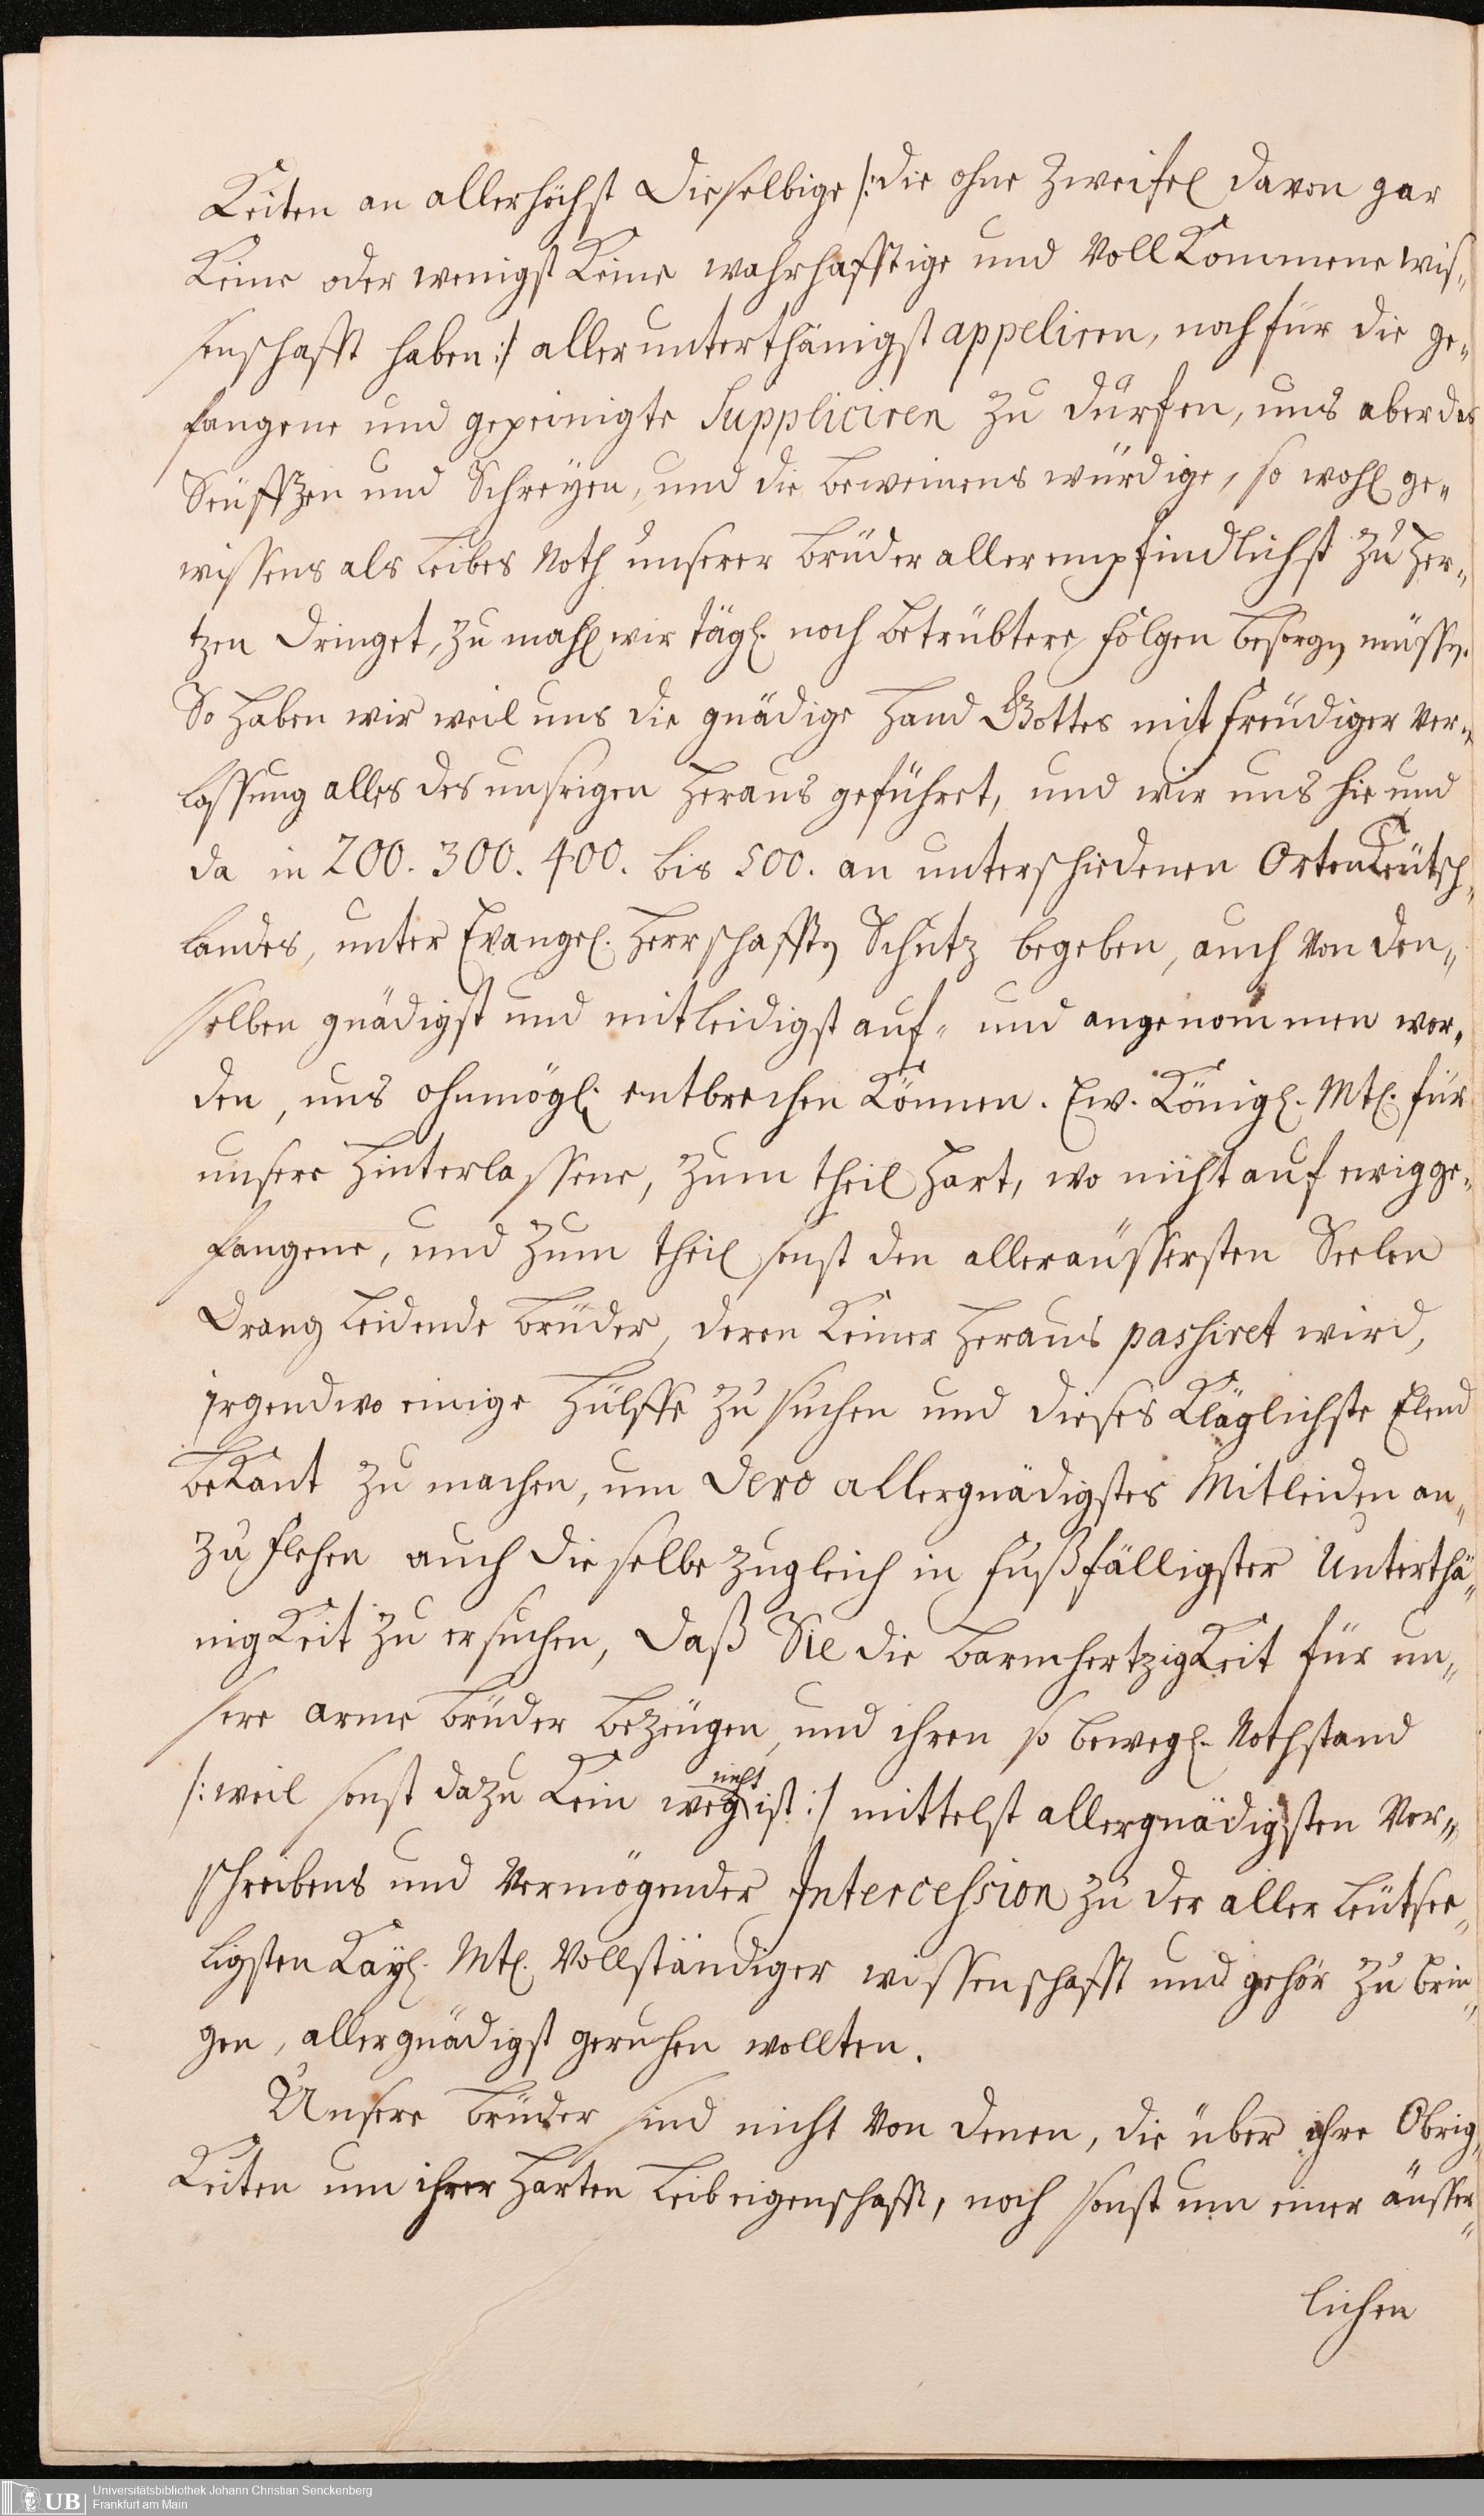 Keiten an allerhöchst Dieselbige /: die ohne Zweifel davon gar
Keine oder wenigst Keine wahrhafftige und vollKommene wis„
senschafft haben :/ allerunterthänigst appeliren, noch für die ge„
fangene und gepeinigte Suppliciren zu dürfen, uns aber das
Seüffzen und Schreyen, und die beweinens würdige, so wohl ge„
wissens als Leibes Noth unserer Brüder allerempfindlichst zu Her„
tzen dringet, zu mahl wir tägl. noch betrübtere folgen besorgen müssen.
So haben wir weil uns die gnädige Hand Gottes mit freüdiger Ver„
lassung alles des unsrigen heraus geführet, und wir uns hie und
da in 200. 300. 400. bis 500. an unterschiedenen Orten Teütsch„
landes, unter Evangel. Herrschafften Schutz begeben, auch von den„
selben gnädigst und mitleidigst auf- und angenommen wor„
den, uns ohnmögl. entbrechen Können. Ew. Königl. Mt. für
unsere Hinterlassene, zum theil hart, wo nicht auf ewig ge„
fangene, und zum theil sonst den alleräussersten Seelen
Drang leidende Brüder, deren Keiner heraus passiret wird,
irgendwo einige Hülffe zu suchen und dieses Kläglichste Elend
beKant zu machen, um Dero allergnädigstes Mitleiden an„
zu flehen auch dieselbe zugleich in fußfälligster Unterthä„
nigKeit zu ersuchen, daß Sie die BarmhertzigKeit für un„
sere arme Brüder bezeügen, und ihren so bewegl. Nothstand
/: weil sonst dazu Kein weg nicht ist :/ mittelst allergnädigsten Vor„
schreibens und Vermögender Intercession zu der aller Leütsee„
ligsten Kayl. Mt. Vollständiger wissenschafft und gehör zu brin„
gen, allergnädigst geruhen wollten.
Unsere Brüder sind nicht von denen, die über ihre Obrig„
Keiten um ihrer harten Leibeigenschafft, noch sonst um einer äusser„
lichen
UB Universitätsbibliothek Johann Christian Senckenberg
Frankfurt am Main